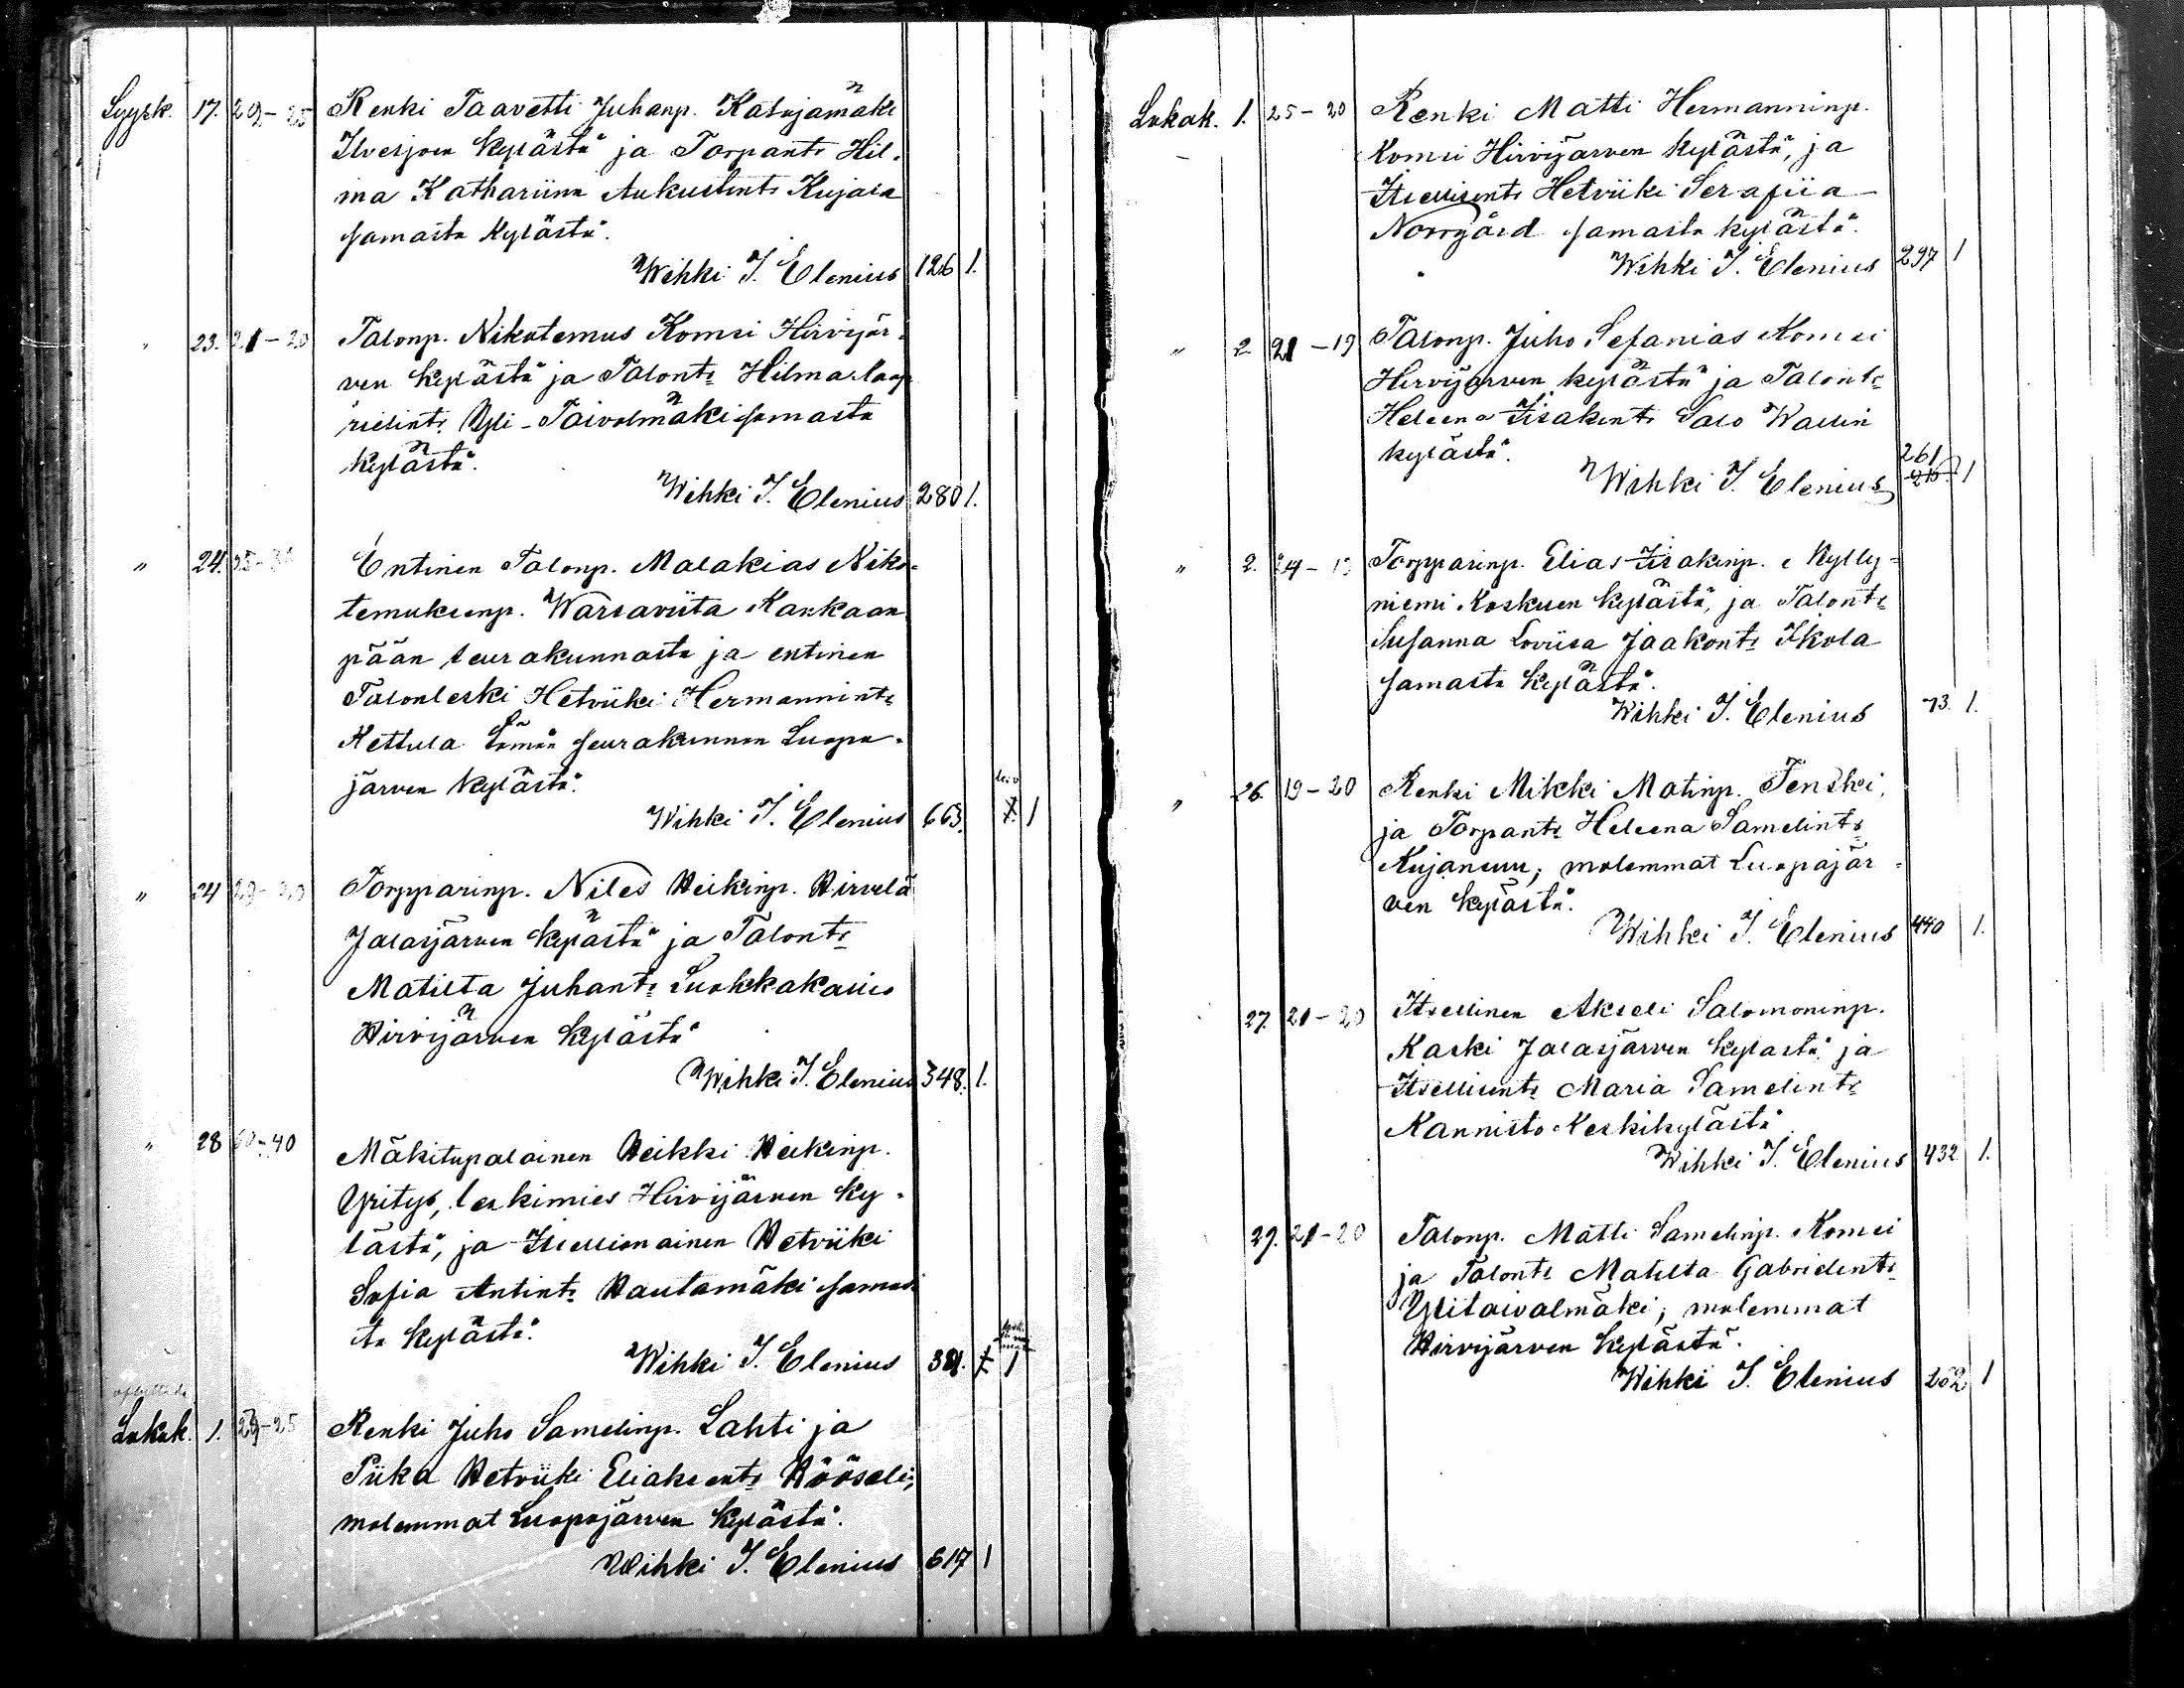 Syysk. 17. 29-25 Renki Taavetti Juhanp. Katajamäki
Ilvesjoen kylästä ja Torpants Hil-
ma Kathariina Aukustints Kujala
samasta kylästä.
Wihki J. Elenius 126 1.
" 23. 21-20 Talonp. Nikotemus Komsi Hirvijär-
ven kylästä ja Talonts Hilma Kaap
rielints Yli-Taivalmäki samasta
kylästä.
Wihki J. Elenius 280 1.
" 24. Entinen Talonp. Malakias Niko-
temuksenp. Warsaviita Kankaan
pään seurakunnasta ja entinen
Talonleski Hetviiki Hermannints
Kettula tämän seurakunnan Luopa-
järven kylästä.
Wihki J. Elenius 663. 1
" 24 29-20 Torpparinp. Niles Heikinp. Hirvelä
Jalasjärven kylästä ja Talonts
Matilta Juhants Luokkakallio
Hirvijärven kylästä
Wihki J. Elenius 348. 1.
" 28 60-40 Mäkitupalainen Heikki Heikinp.
Yritys, leskimies Hirvijärven ky-
lästä, ja Itsellisnainen Hetviiki
Sofia Antints Hautamäki samas-
ta kylästä.
Wihki J. Elenius 381. 1
Lokak. 1. 29-25 Renki Juho Samelinp. Lahti ja
Piika Hetviiki Eliaksents Hööseli,
molemmat Luopajärven kylästä.
Wihki J. Elenius 617 1
Lokak. 1. 25-20 Renki Matti Hermanninp.
Komsi Hirvijärven kylästä, ja
Itsellisents Hetviiki Serafiia
Norrgård samasta kylästä.
Wihki J. Elenius 297 1
" 2 21-19 Talonp. Juho Sefanias Komsi
Hirvijärven kylästä ja Talonts
Heleena Iisakints Salo Wallin
kylästä.
261
Wihki J. Elenius 1
" 2. 24-19 Torpparinp. Elias Iisakinp. Kylly-
niemi Koskuen kylästä, ja Talonts
Susanna Loviisa Jaakonts Ikola
samasta kylästä.
Wihki J. Elenius 73. 1.
" 26. 19-20 Renki Mikki Matinp. Fenski,
ja Torpants Heleena Samelints
Kujansuu, molemmat Luopajär-
ven kylästä.
Wihki J. Elenius 440 1.
27. 21-20 Itsellinen Akseli Salomoninp.
Kaski Jalasjärven kylästä ja
Itsellisents Maria Samelints
Kannisto Keskikylästä
Wihki J. Elenius 432 1.
29. 21-20 Talonp. Matti Samelinp. Komsi
ja Talonts Matilta Gabrielints
Ylitaivalmäki, molemmat
Hirvijärven kylästä.
Wihki J. Elenius 252 1